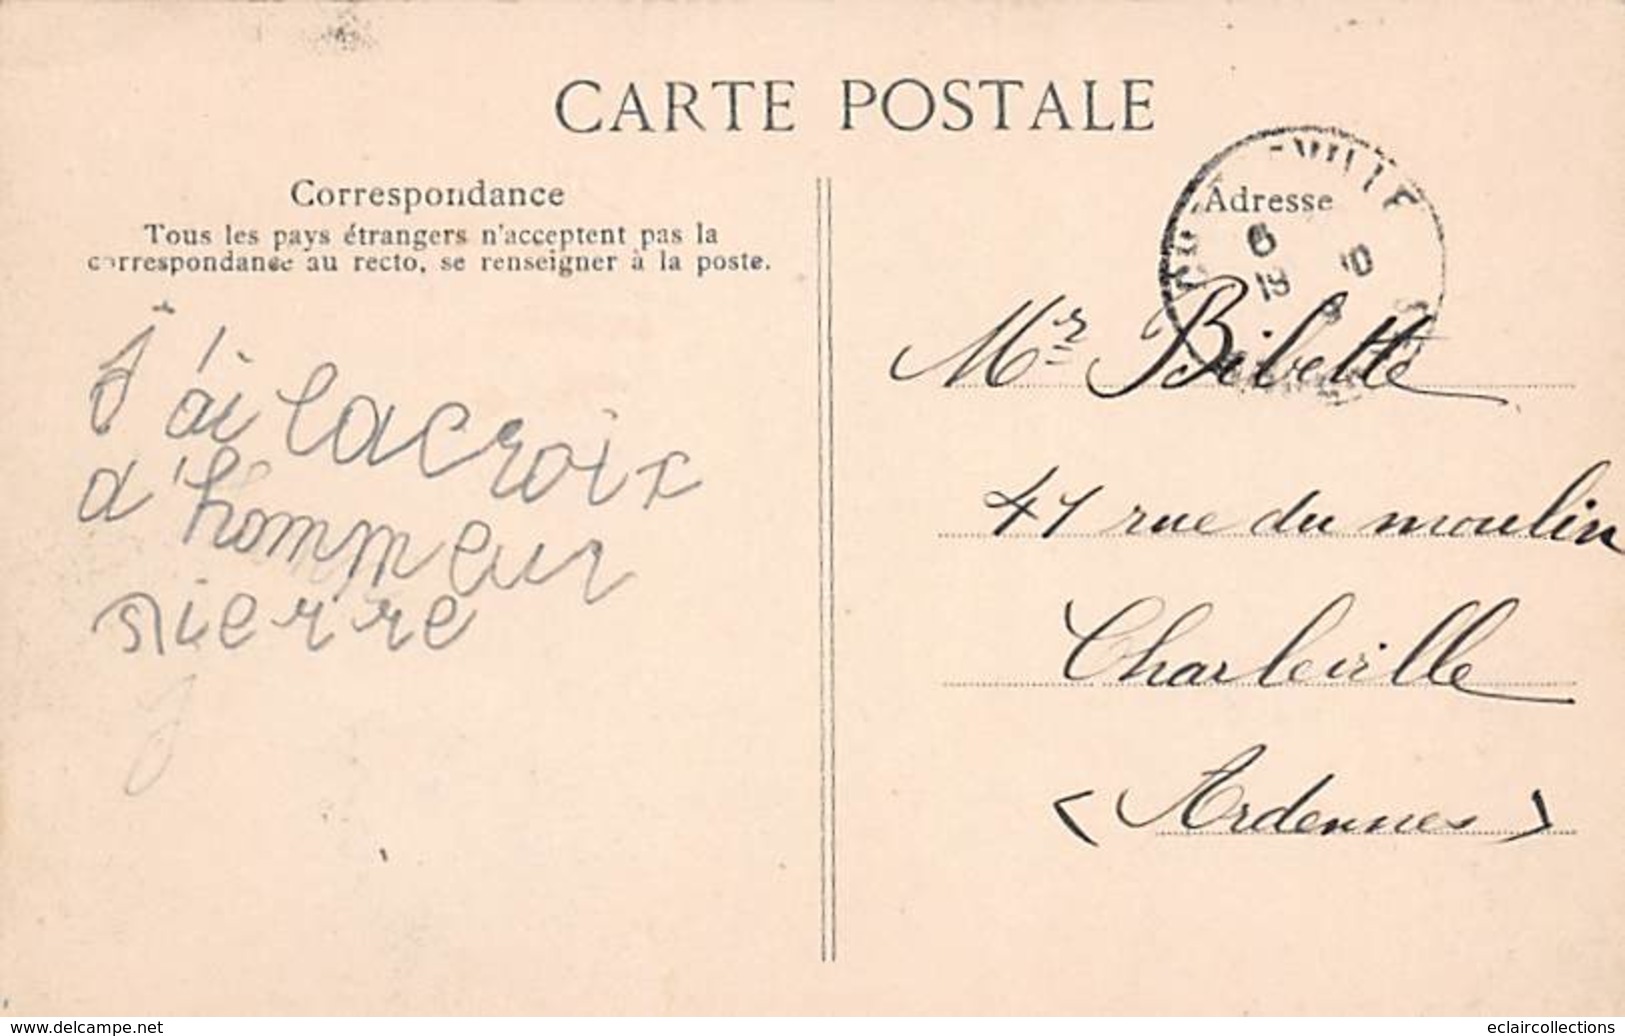 CARTE POSTALE
Correspondance
Tous les pays étrangers n'acceptent pas la
correspondance au recto, se renseigner à la poste.
J'ai lacroix
d'hommeur
pierre
Adresse
Mr Bibette
41 rue du moulin
Charleville
(Ardennes)
eclaircollections